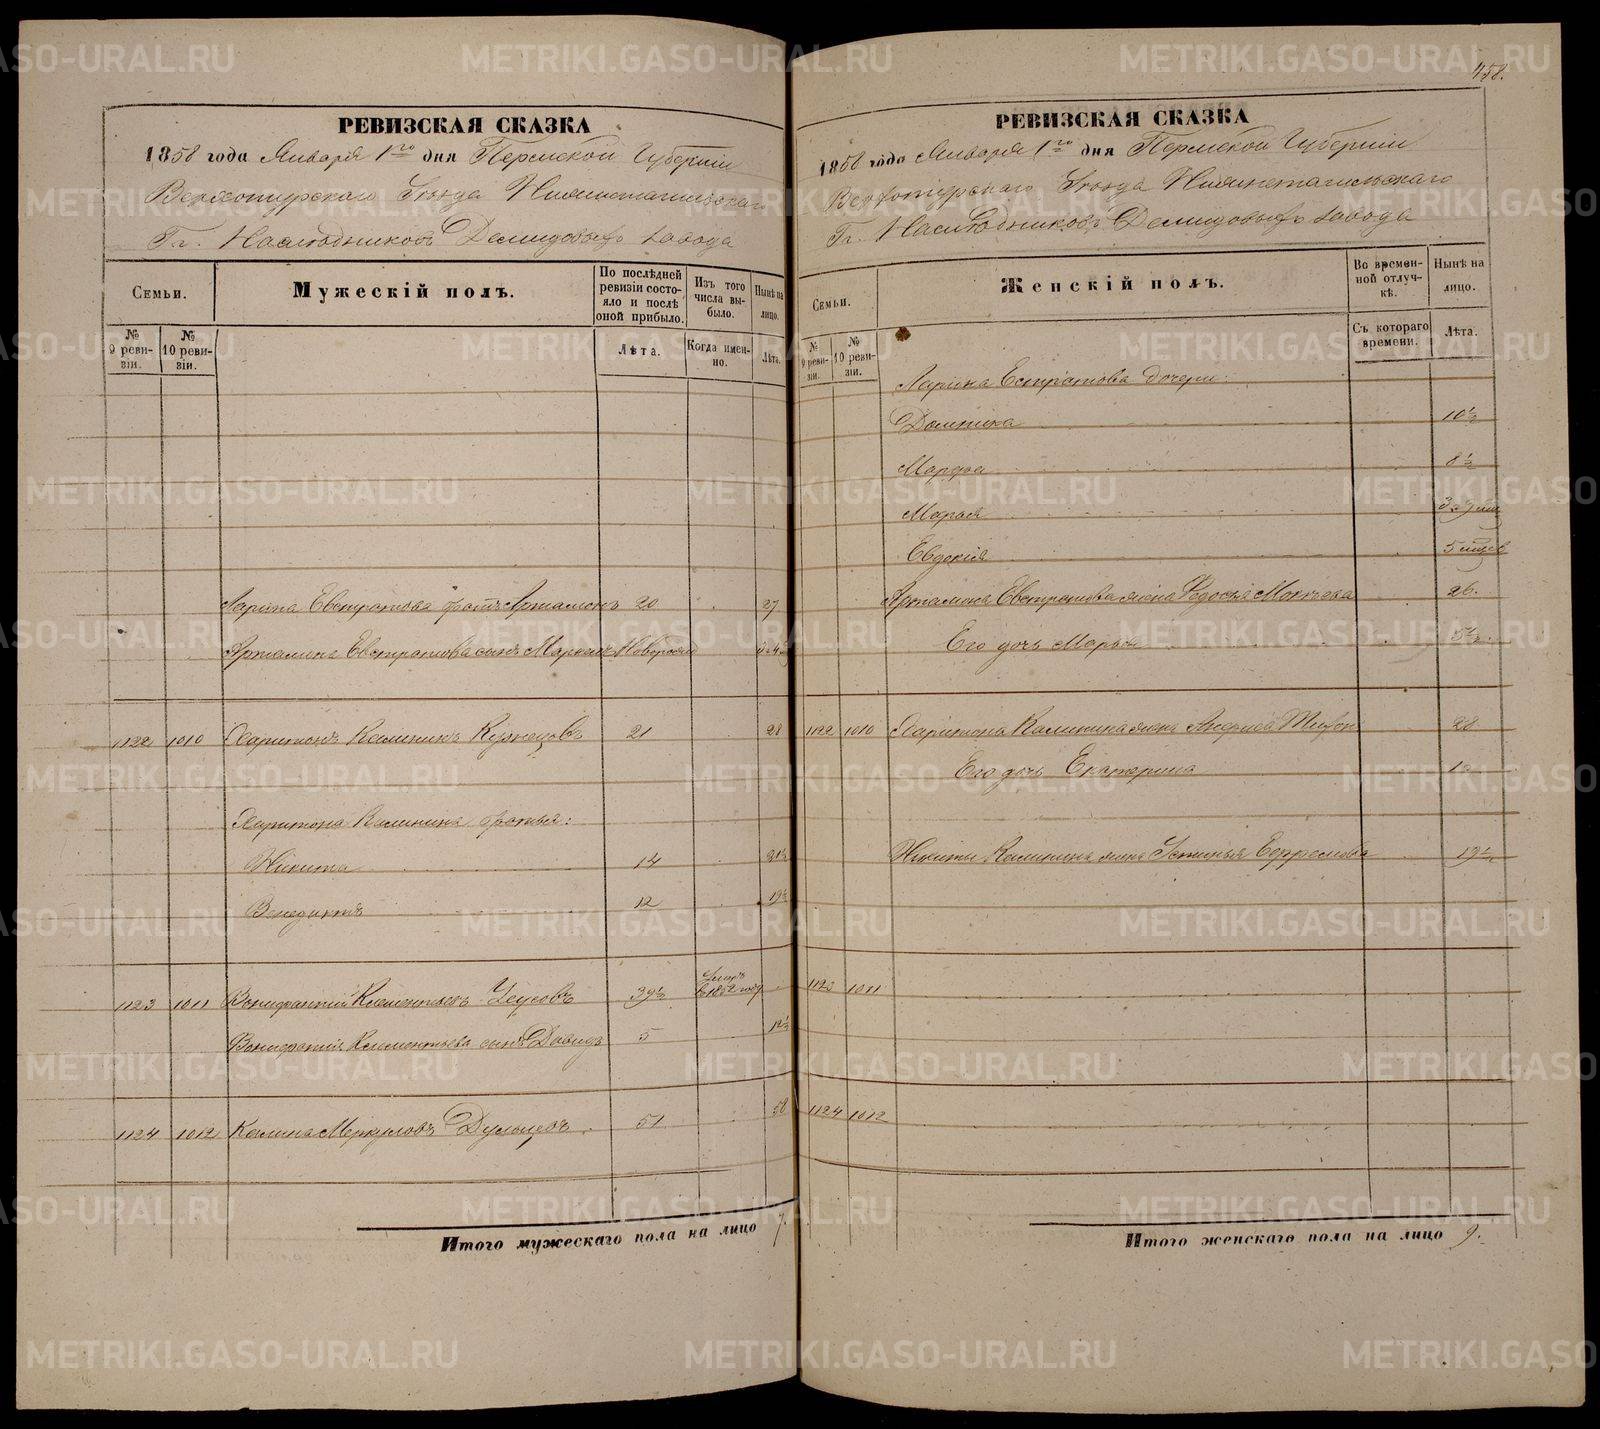 458.
РЕВИЗСКАЯ СКАЗКА
1858 года Января 1го дня Пермской Губернiи
Верхотурскаго Уѣзда Нижнетагильскаго
Гг. Наслѣдниковъ Демидовыхъ завода
Семьи.
Мужескій полъ.
По послѣдней ревизіи состояло и послѣ оной прибыло.
Изъ того числа выбыло.
Нынѣ на лицо.
№ 9 ревизіи.
№ 10 ревизіи.
Лѣта.
Когда именно.
Лѣта.
Ларіона Евстратова братъ Артамонъ 20 27
Артамона Евстратова сынъ Маркелъ Новорожд
1122 1010 Харитонъ Калининъ Кузнецовъ 21 28
Харитона Калинина братья:
Никита 14 21½
Венедиктъ 12 19½
1123 1011 Вонифантій Клементьевъ Усовъ 39½ Умеръ въ 1852 году
Вонифантія Клементьева сынъ Давидъ 5 12½
1124 1012 Калина Меркуловъ Дульцевъ 51 58
Итого мужескаго пола на лицо 7.
РЕВИЗСКАЯ СКАЗКА
1858 года Января 1го дня Пермской Губернiи
Верхотурскаго Уѣзда Нижнетагильскаго
Гг. Наслѣдниковъ Демидовыхъ завода
Семьи.
Женскій полъ.
Во временной отлучкѣ.
Нынѣ на лицо.
№ 9 ревизіи.
№ 10 ревизіи.
Съ котораго времени.
Лѣта.
Ларіона Евстратова дочери:
Домника 10½
Марфа 8½
Марья
Евдокія 5 мцев
Артамона Евстратова жена Федосья Мокѣева 26.
Его дочь Марья 5½
1122 1010 Харитона Калинина жена 28
Его дочь Екатерина
Никиты Калинина жена Устинья Ефремова 19½
1123 1011
1124 1012
Итого женскаго пола на лицо 9.
METRIKI.GASO-URAL.RU